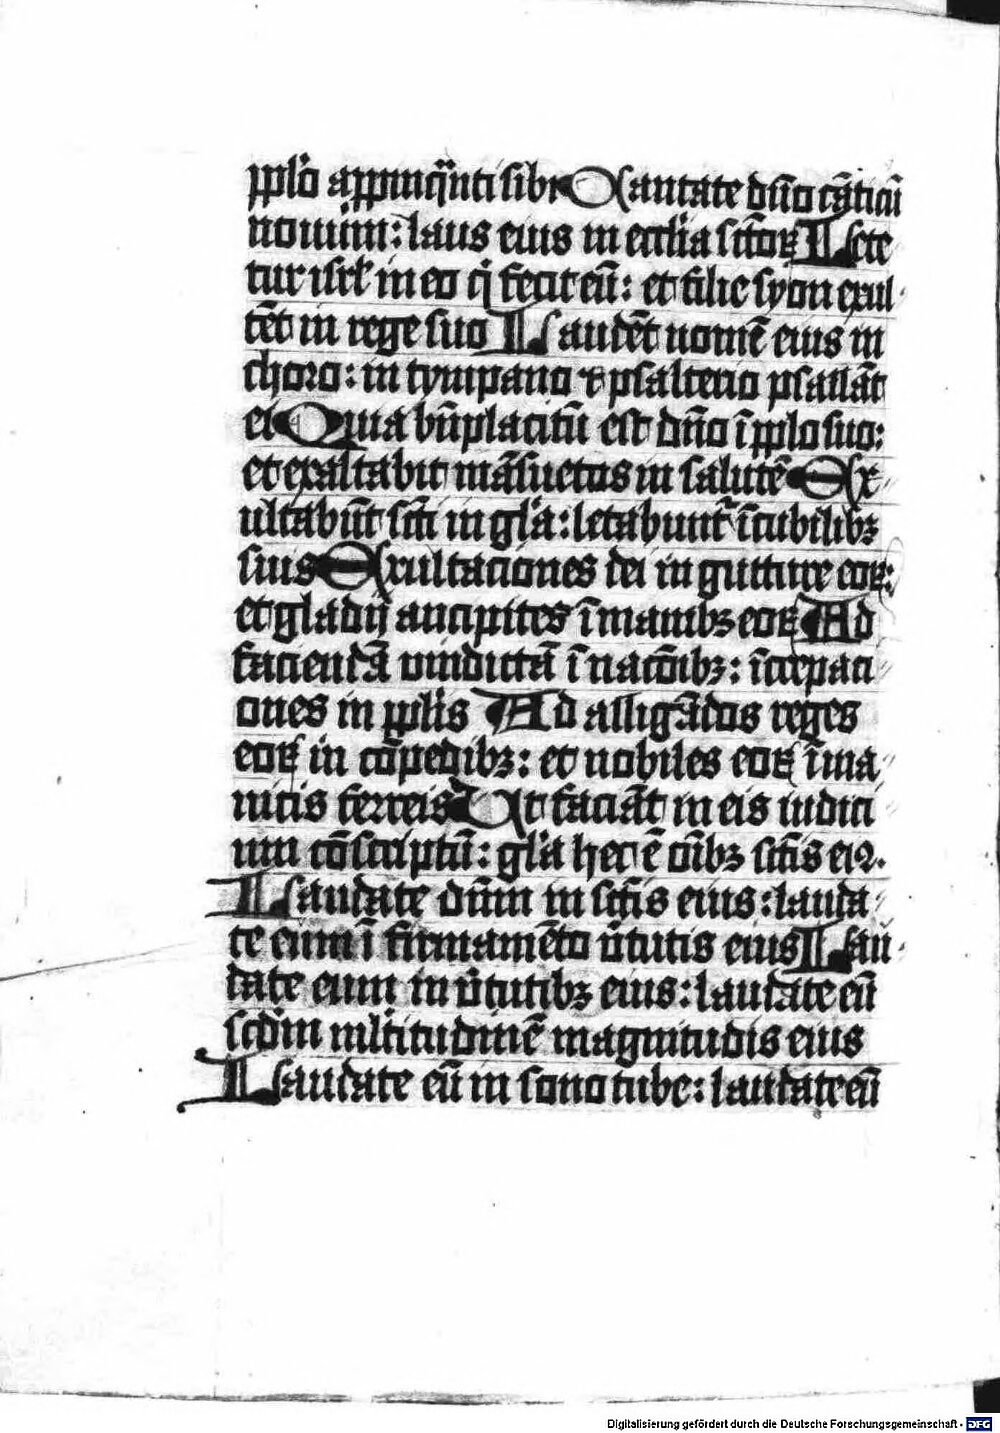 ppl̅o appinq̈nti sibi Cantate dn̅o ca̅ticu̅
nouum: laus eius in eccl̅ia sc̅toꝝ Lete
tur isrl̅ in eo q̇ fecit eu̅: et filie syon exul-
te̅t in rege suo Laude̅t nome̅ eius in
choro: in tympano ⁊ psalterio psalla̅t
ei Quia bn̅placitu̅ est dn̅o i̅ pplo suo:
et exaltabit ma̅suetos in salute̅ Ex-
ultabu̅t sc̅ti in gl̅a: letabunt᷑ i̅ cubilibꝫ
suis Exultaciones dei in gutture eoꝝ:
et gladij ancipites i̅ manibꝫ eoꝝ Ad
facienda̅ uindicta̅ i̅ nac̅oibꝫ: i̅crepaci-
ones in ppl̅is Ad alliga̅dos reges
eoꝝ in co̅pedibꝫ: et nobiles eoꝝ i̅ ma-
nicis ferreis Ut facia̅t in eis iudici-
um co̅scriptu̅: gl̅a hec e̅ o̅ibꝫ sc̅tis eiꝯ.
Laudate dn̅m in sc̅tis eius: lauda-
te eum i̅ firmame̅to u̅tutis eius Lau-
date eum in u̅tutibꝫ eius: laudate eu̅
scd̅m ml̅titudine̅ magnitudis eius
Laudate eu̅ in sono tube: laudate eu̅
Digitalisierung gefördert durch die Deutsche Forschungsgemeinschaft - DFG